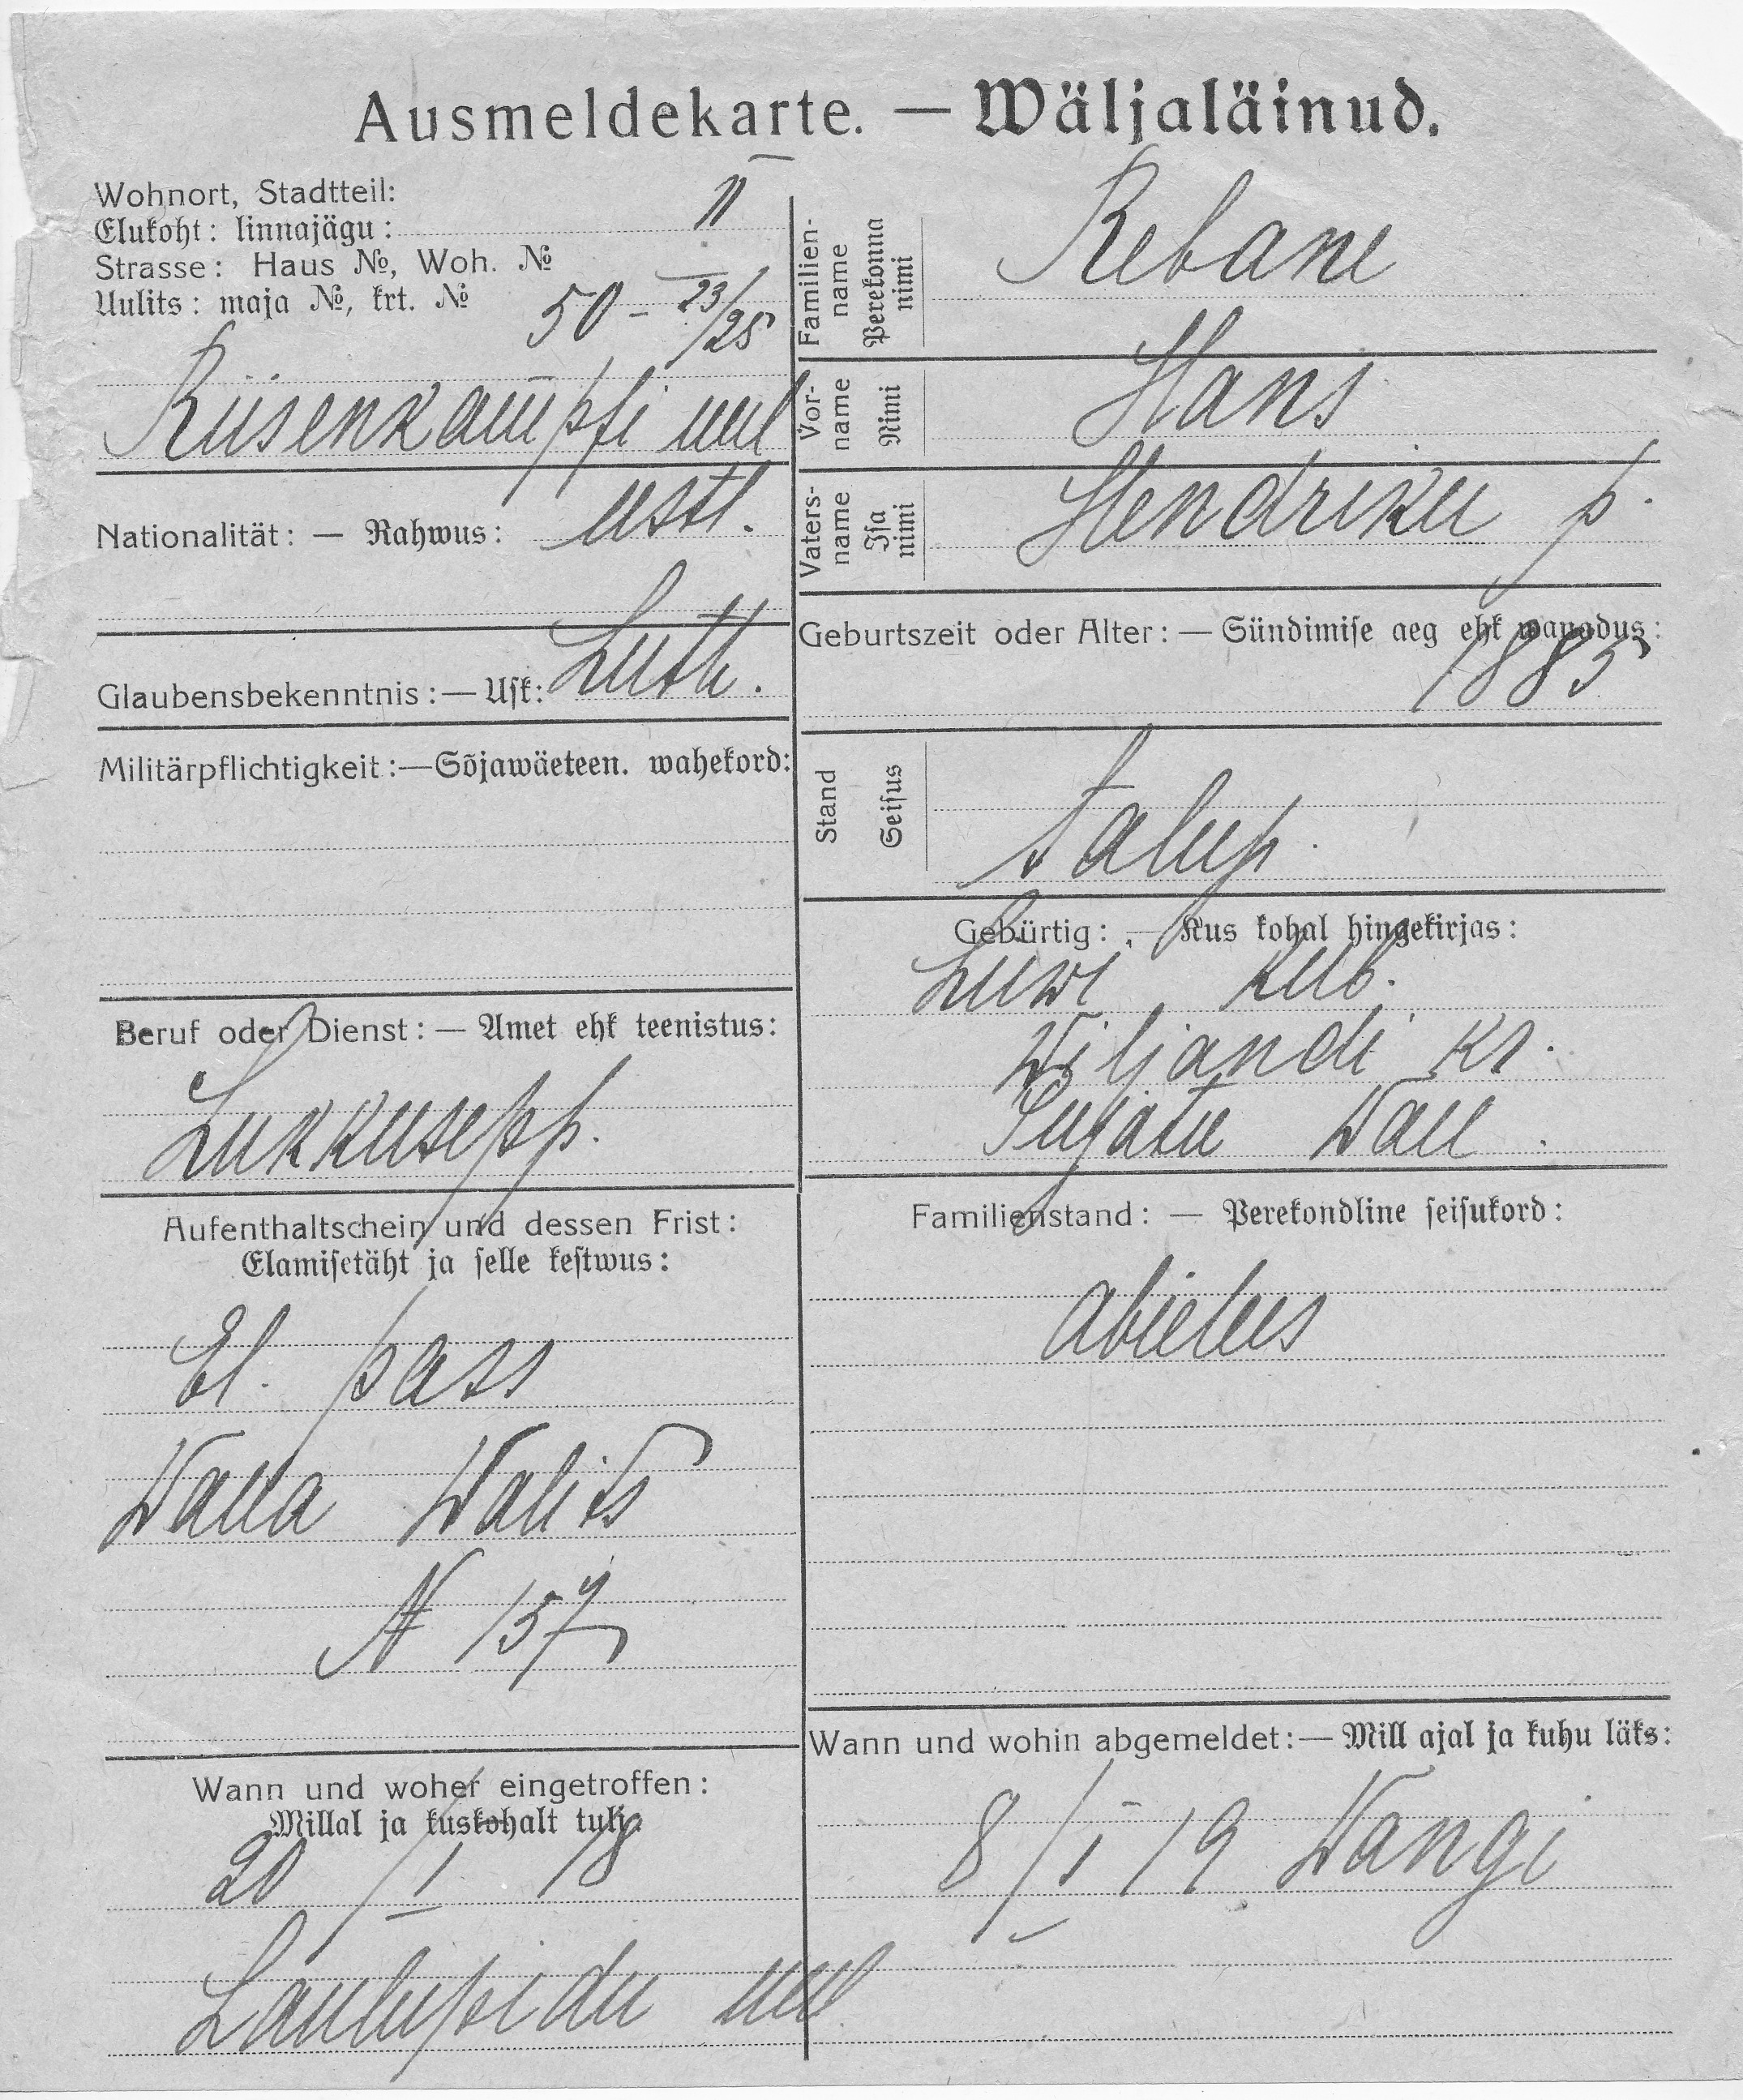 Ausmeldekarte. — Wäljaläinud.
Wohnort, Stadtteil:
Elukoht: linnajägu: II
Strasse: Haus №, Woh. №
Uulits: maja №, krt. № 50 - 23/25
Rüsenkampfi uul
Nationalität: — Rahwus: eestl.
Glaubensbekenntnis: — Usk: Luth.
Militärpflichtigkeit: — Sõjawäeteen. wahekord:
Beruf oder Dienst: — Amet ehk teenistus:
Lukkusepp.
Aufenthaltschein und dessen Frist:
Elamisetäht ja selle kestwus:
El. pass
Walla Walits
N 157
Wann und woher eingetroffen:
Millal ja kuskohalt tuli:
20/I 18
Laulupidu uul
Familien-
name
Perekonna
nimi
Rebane
Vor-
name
Nimi
Hans
Vaters-
name
Isa
nimi
Hendriku p.
Geburtszeit oder Alter: — Sündimise aeg ehk wanadus:
1885
Stand
Seisus
talup.
Gebürtig: — Kus kohal hingekirjas:
Liiwi kub.
Wiljandi kr.
Wall
Familienstand: — Perekondline seisukord:
abielus
Wann und wohin abgemeldet: — Mill ajal ja kuhu läks:
8/I 19 Wangi